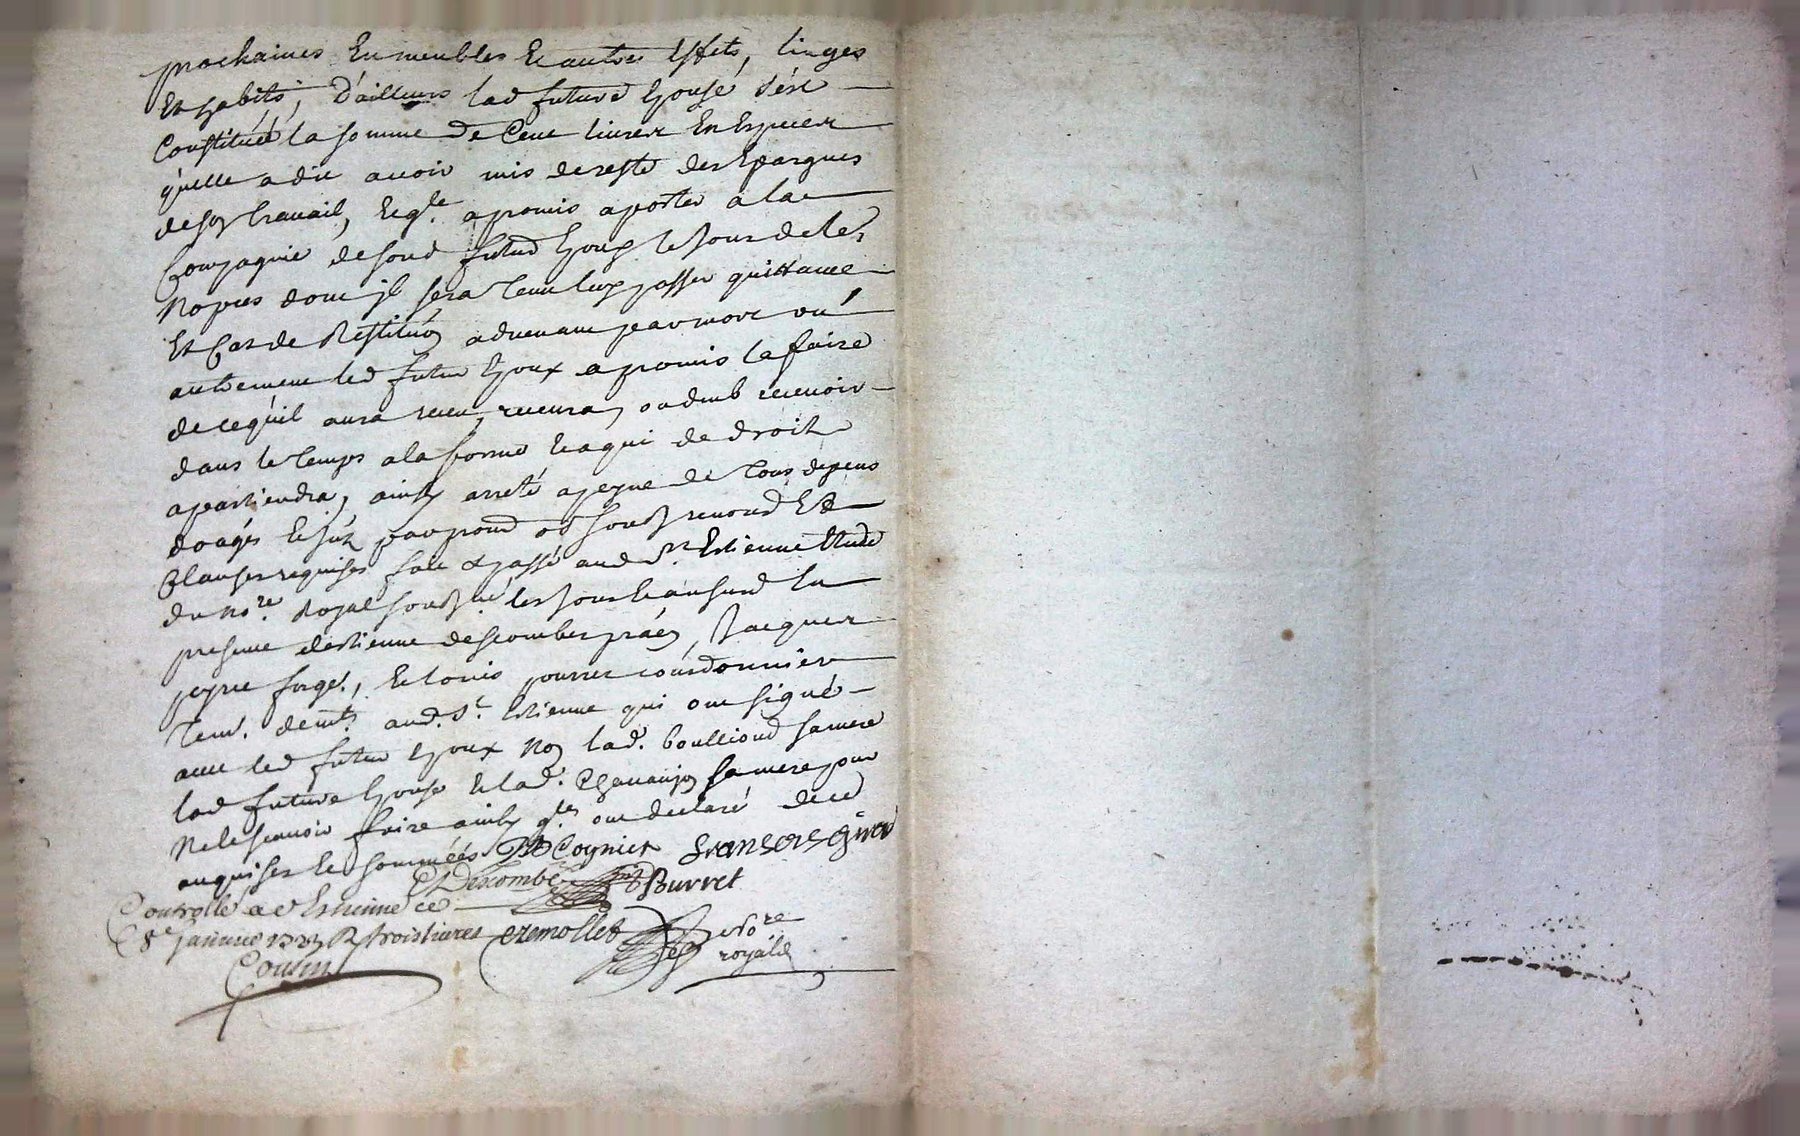 prochaines En meubles Et autres Effets, linges
Et habits, D'ailleurs lad future Epouse s'est
Constituée la somme de Cent livres En Especes
qu'elle a dit avoir mis de reste des Epargnes
de son travail, Et qle. a promis aporter a la
Compagnie de sond futur Epoux le jour de les
Nopces dont il sera tenu luy passer quittance
Et Cas de Restituon advenant par mort ou
autrement led futur Epoux a promis la faire
de ce qu'il aura receu, recevra, ou deub recevoir
dans le temps a la forme Et a qui de droit
apartiendra, ainsy arreté a peyne de tous depens
domages Et
Clauses requises fait & passé aud St. Estienne Etude
du Nore. Royal soussigné les jour Et an susd En
presence d'Estienne descombes praen, Jacques
peyre forgr., Et Louis courdonnier
aud. St. Estienne qui ont signé
avec led futur Epoux Non lad. boulliond sa mere
lad future Epouse Et lad. Chavanon sa mere pour
Ne le scavoir faire ainsy qles. ont declaré de ce
enquises Et sommées Coynier fransois giron
Descombe Burret
Controllé a St Estienne ce
8e Janvier R trois livres cremollet Nore
Cousin royal